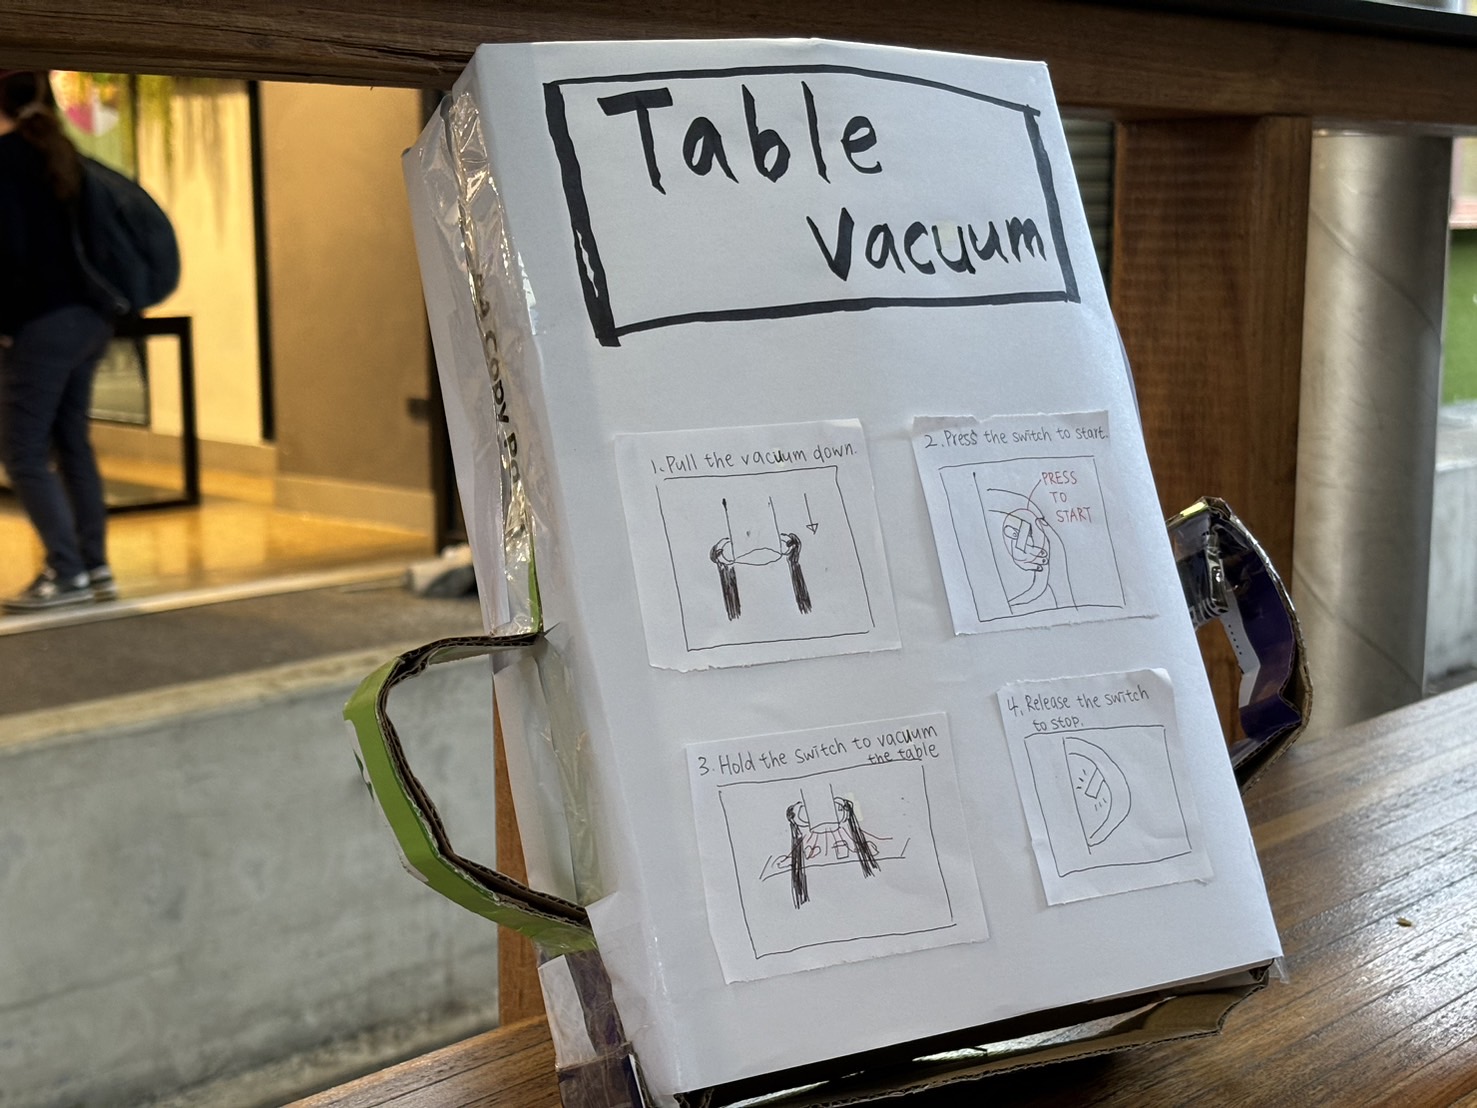 Table
Vacuum
1. Pull the vacuum down.
2. Press the switch to start.
PRESS
TO
START
3. Hold the switch to vacuum
the table
4. Release the switch
to stop.
COPY